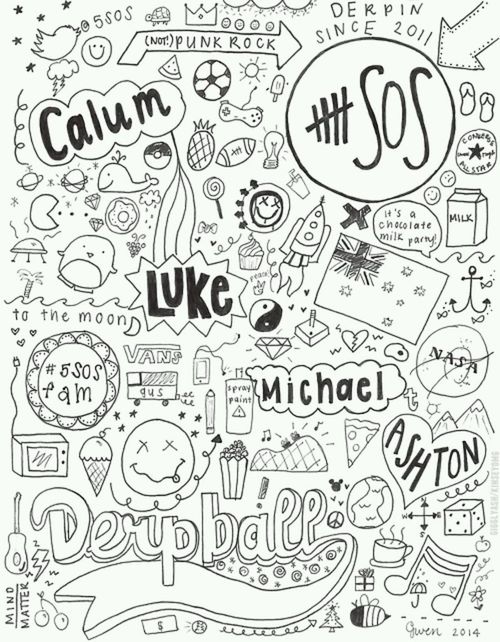 @5SOS
(NOT!) PUNK ROCK
DERPIN
SINCE 2011
Calum
SOS
CONVERSE
ALL STAR
IT'S A
CHOCOLATE
MILK PARTY!
MILK
LUKE
peace
to the moon
VANS
NASA
#5SOS
fam
gus
spray
paint
Michael
t
ASHTON
Derpball
N
W
E
S
MIND
MATTER
$
Gwen 2014